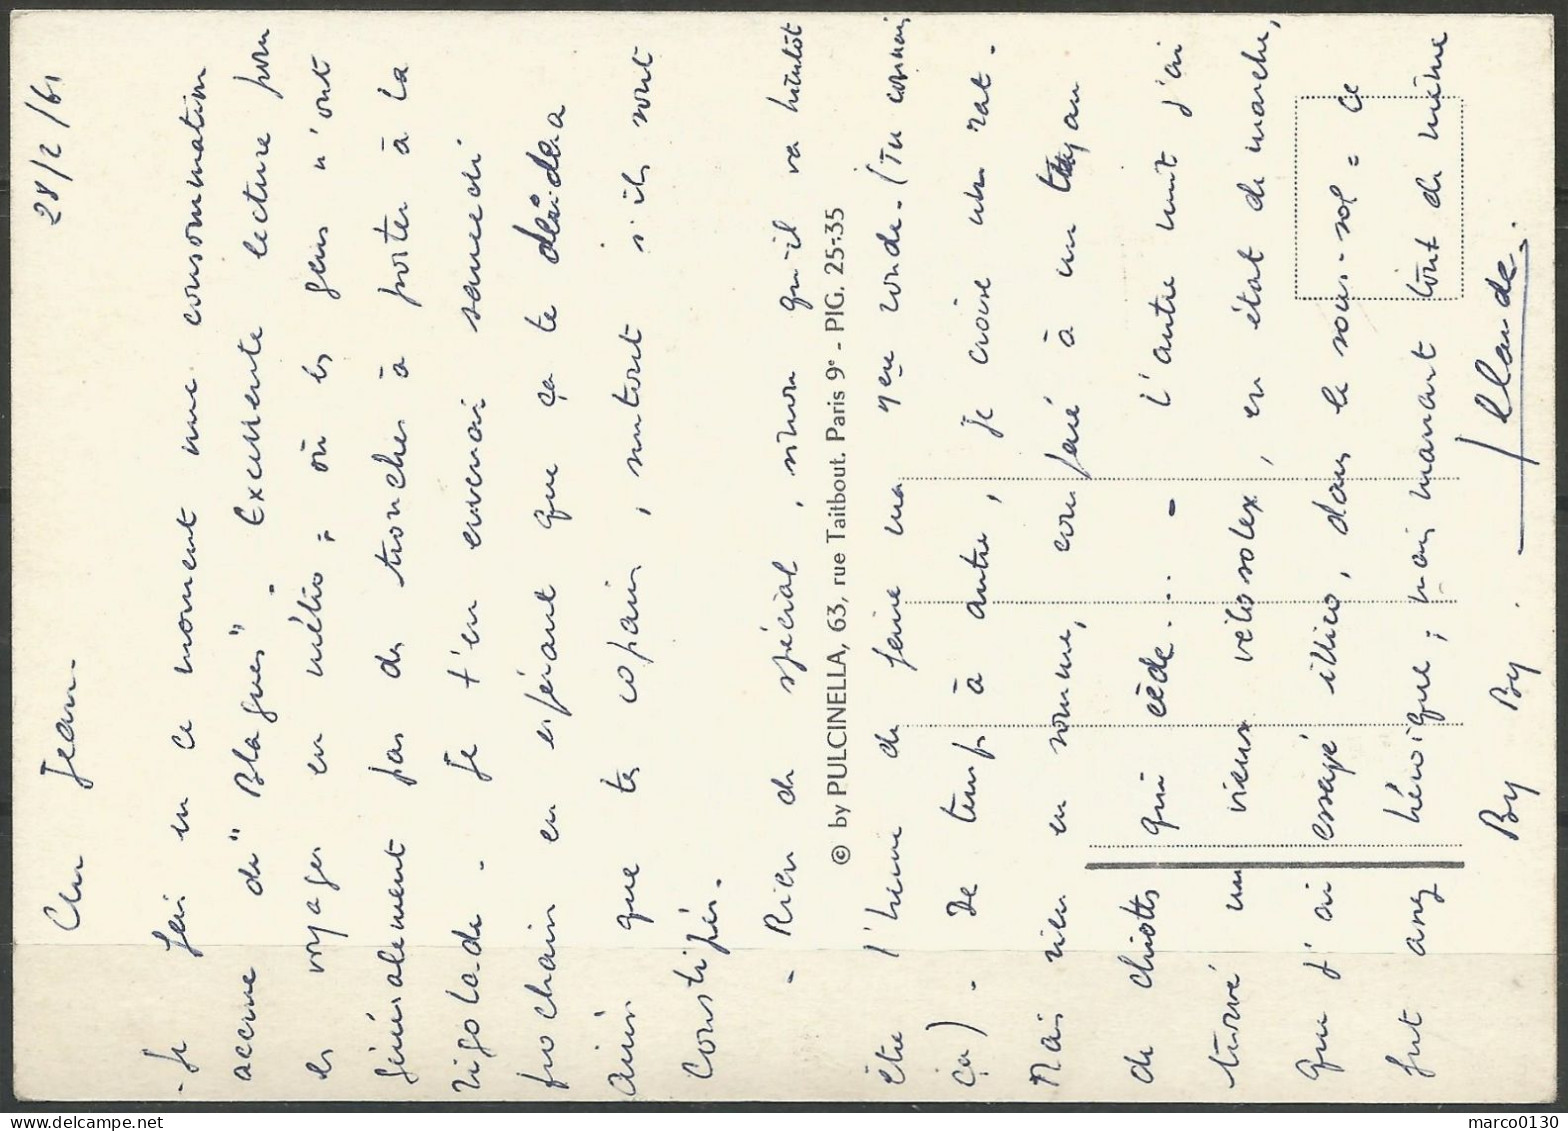 28/2/61
Cher Jean.
- Je fais en ce moment une consommation
accrue de "Blagues". Excellente lecture pour
les voyages en métro ; où les gens n'ont
généralement pas des tronches à porter à la
rigolade. Je t'en enverrai samedi
prochain en espérant que ça te déridera
ainsi que tes copains, surtout s'ils sont
constipés.
- Rien de spécial, sinon qu'il va bientôt
être l'heure de faire ma ronde. (Tu connais
ça). De temps à autre, je croise un rat.
Mais rien en somme, comparé à un tuyau
de chiottes qui cède... - L'autre nuit j'ai
trouvé un vieux vélosolex, en état de marche,
que j'ai essayé illico, dans le sous-sol = ce
fut assez héroïque, mais marrant tout de même
By By. Claude.
© by PULCINELLA, 63, rue Taitbout. Paris 9e - PIG. 25-35
marco0130